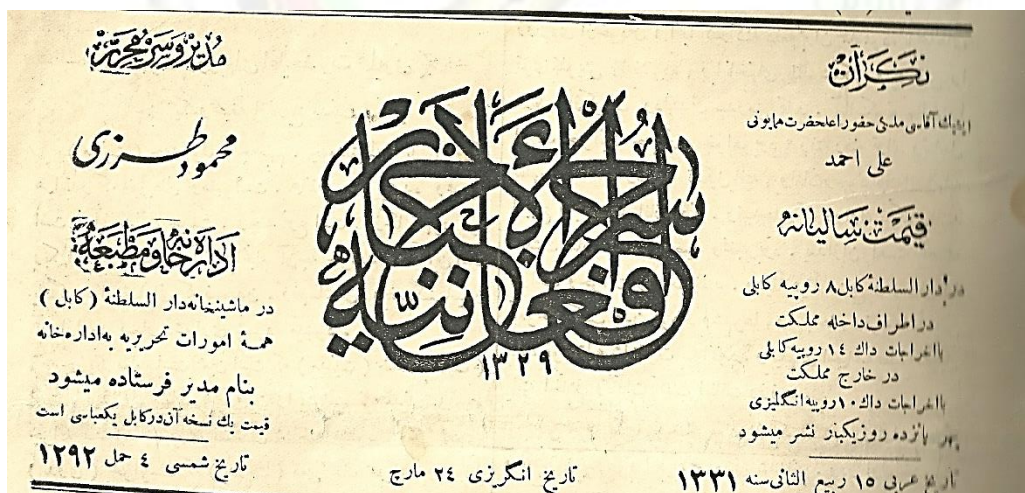 نگران
ایشیك آقاسی ملكی حضور اعلحضرت همایونی
علی احمد
قیمت سالیانه
در دار السلطنۀ كابل ۸ روپیه كابلی
در اطراف داخله مملكت
بااخراجات داك ۱٤ روپیه كابلی
در خارج مملكت
بااخراجات داك ۱۰ روپیه انگلیزی
بهر پانزده روز یكبار نشر میشود
تاریخ عربی ۱٥ ربیع الثانی سنه ۱۳۳۱
سراج الأخبار
افغانیه
۱۳۲۹
تاریخ انگریزی ۲٤ مارچ
مدیر و سر محرر
محمود طرزی
اداره خانه و مطبعه
در ماشینخانه دار السلطنۀ (كابل)
همـۀ امورات تحریریه به اداره خانه
بنام مدیر فرستاده میشود
قیمت یك نسخه آن در كابل یكعباسی است
تاریخ شمسی ٤ حمل ۱۲۹۲